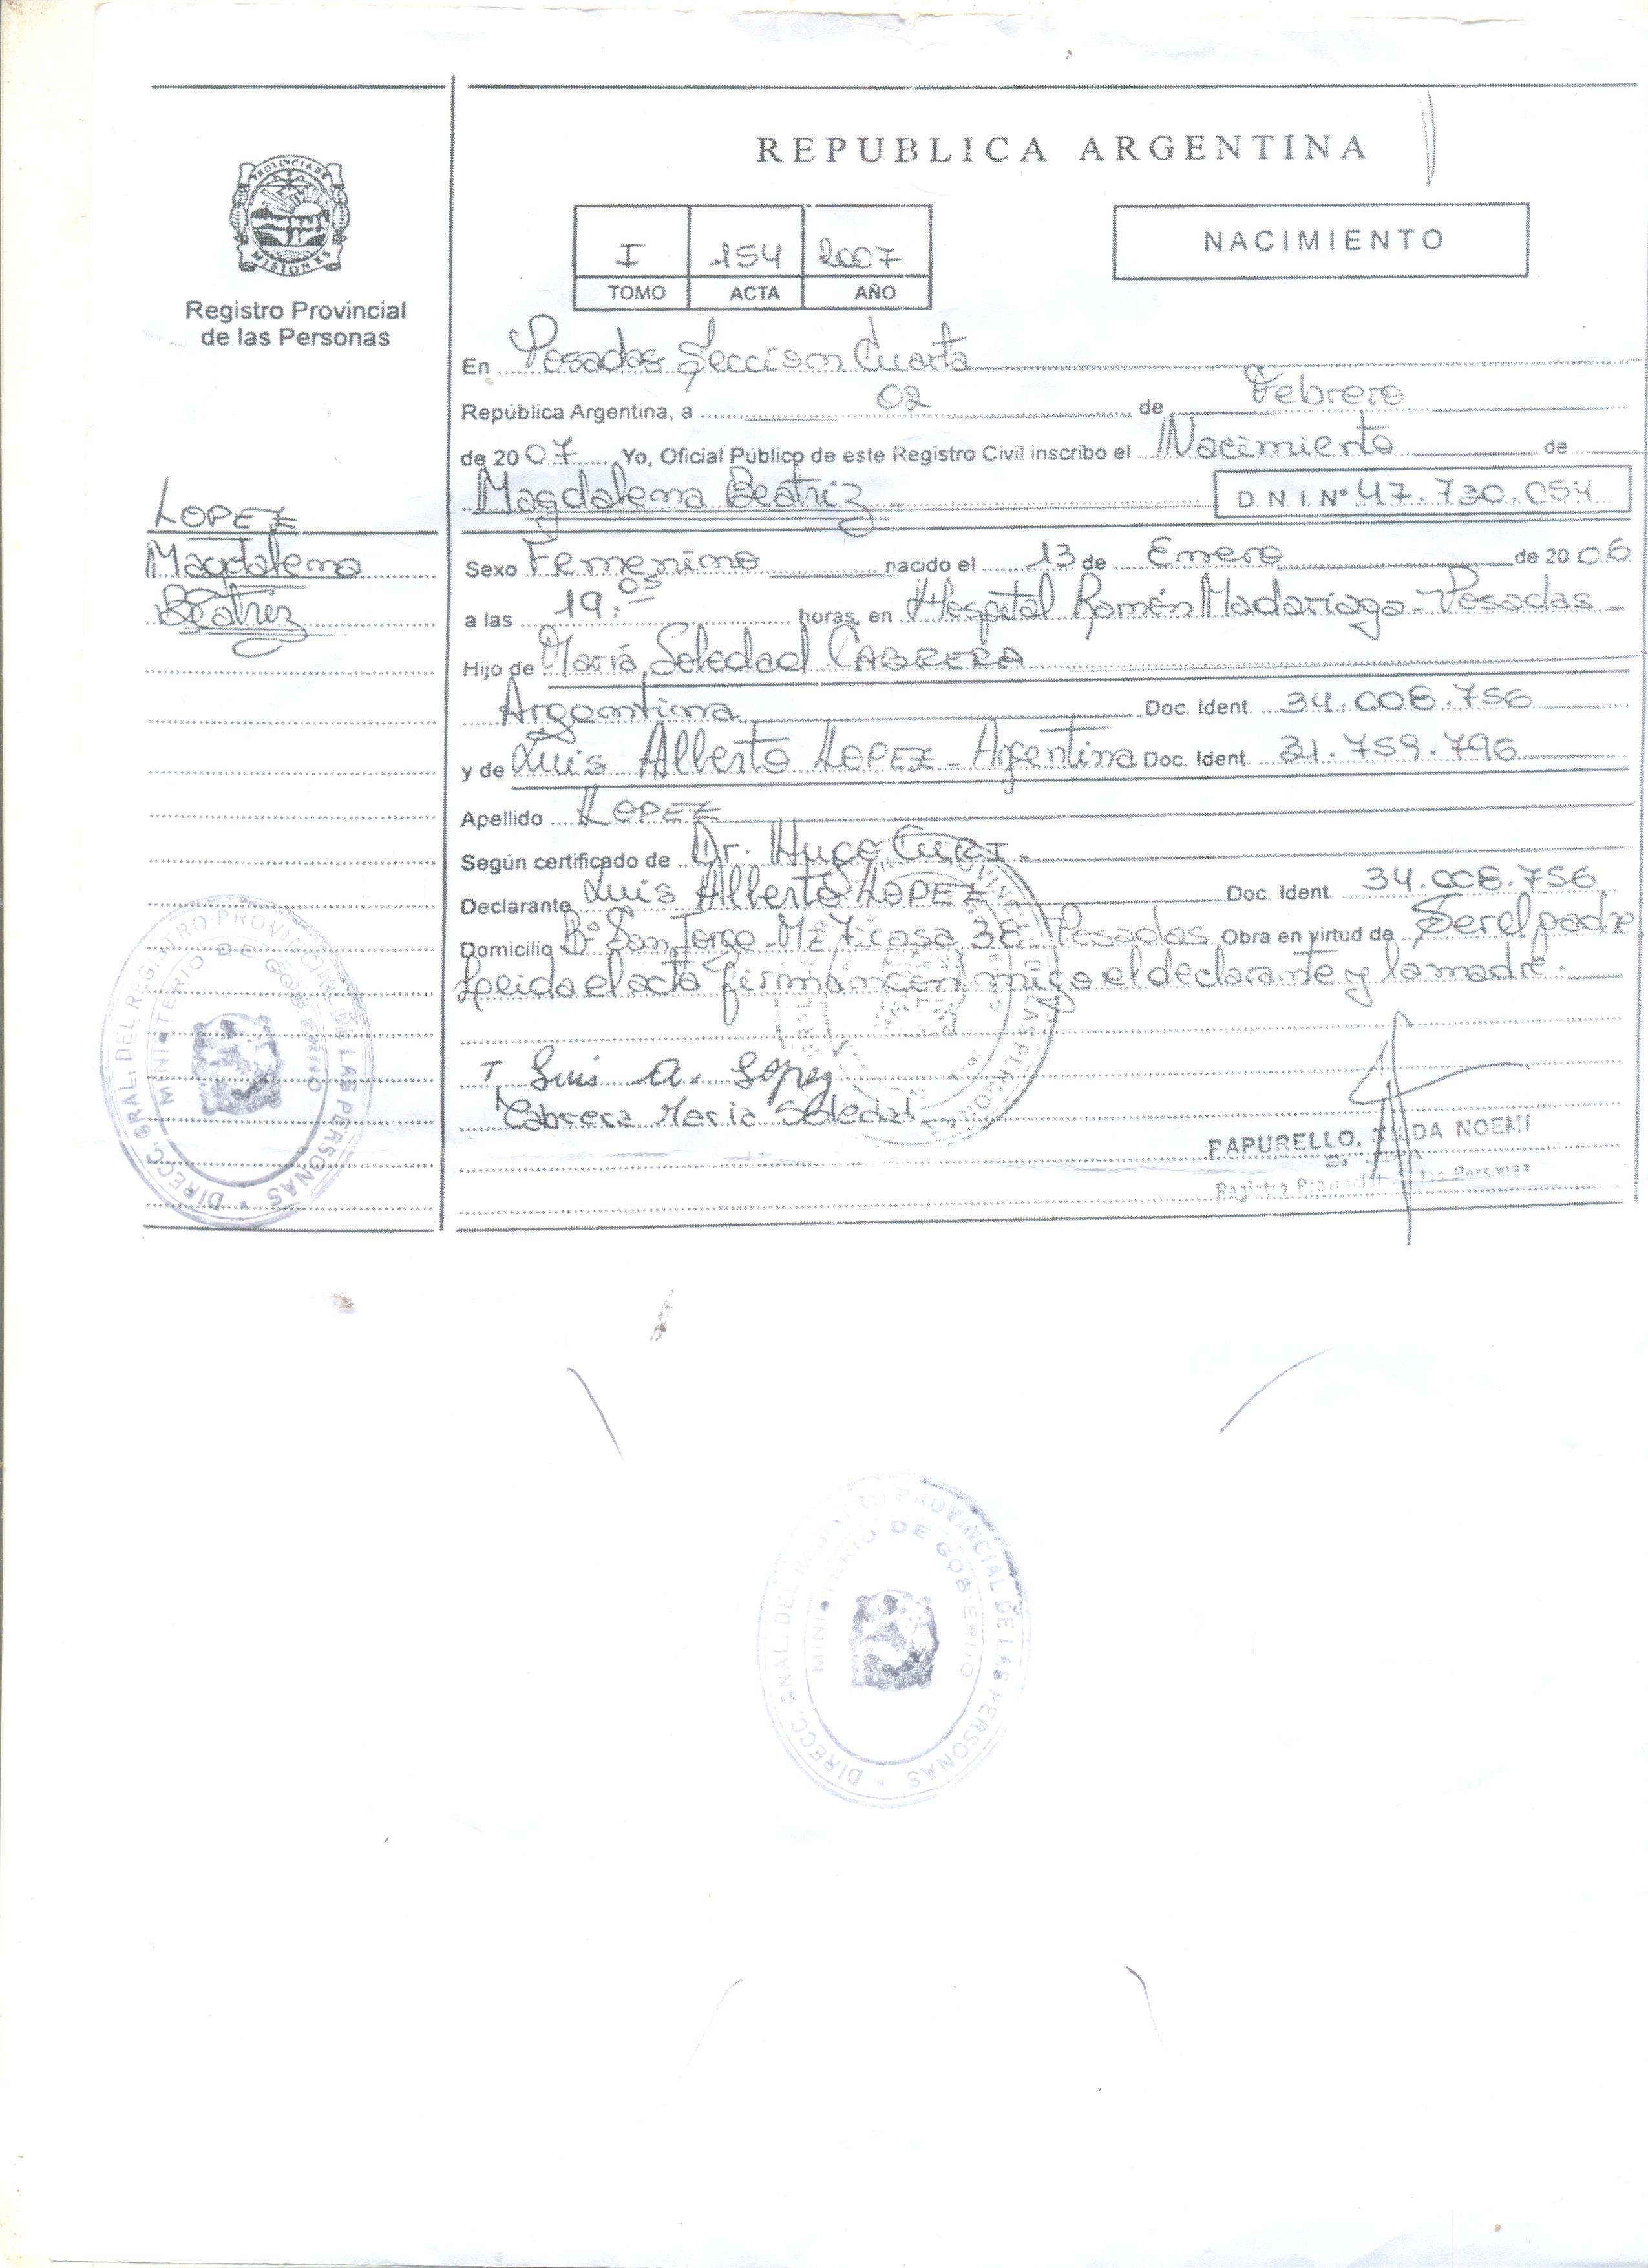 PROVINCIA DE
MISIONES
Registro Provincial
de las Personas
LOPEZ
Magdalena
Beatriz
REPUBLICA ARGENTINA
I 154 2007
TOMO ACTA AÑO
NACIMIENTO
En Posadas Seccion Cuarta
República Argentina, a 02 de Febrero
de 2007 Yo, Oficial Público de este Registro Civil inscribo el Nacimiento de
Magdalena Beatriz D.N.I. Nº 47.730.054
Sexo Femenino nacido el 13 de Enero de 2006
a las 19:05 horas, en Hospital Ramón Madariaga - Posadas -
Hijo de María Soledad CABRERA
Argentina Doc. Ident. 34.008.756
y de Luis Alberto LOPEZ - Argentina Doc. Ident. 31.759.796
Apellido LOPEZ
Según certificado de Dr. Hugo CURI.
Declarante Luis Alberto LOPEZ Doc. Ident. 34.008.756
Domicilio Bº San Jorge - Mz 7 casa 38 - Posadas Obra en virtud de Ser el padre
Leida el acta firman conmigo el declarante y la madre.
Luis A. Lopez
Cabrera Maria Soledad
PAPURELLO, NOEMI
Registro Provincial de las Personas
DIRECC. GRAL. DEL REGISTRO PROVINCIAL DE LAS PERSONAS
MINISTERIO DE GOBIERNO
DIRECC. GRAL. DEL REGISTRO PROVINCIAL DE LAS PERSONAS
MINISTERIO DE GOBIERNO